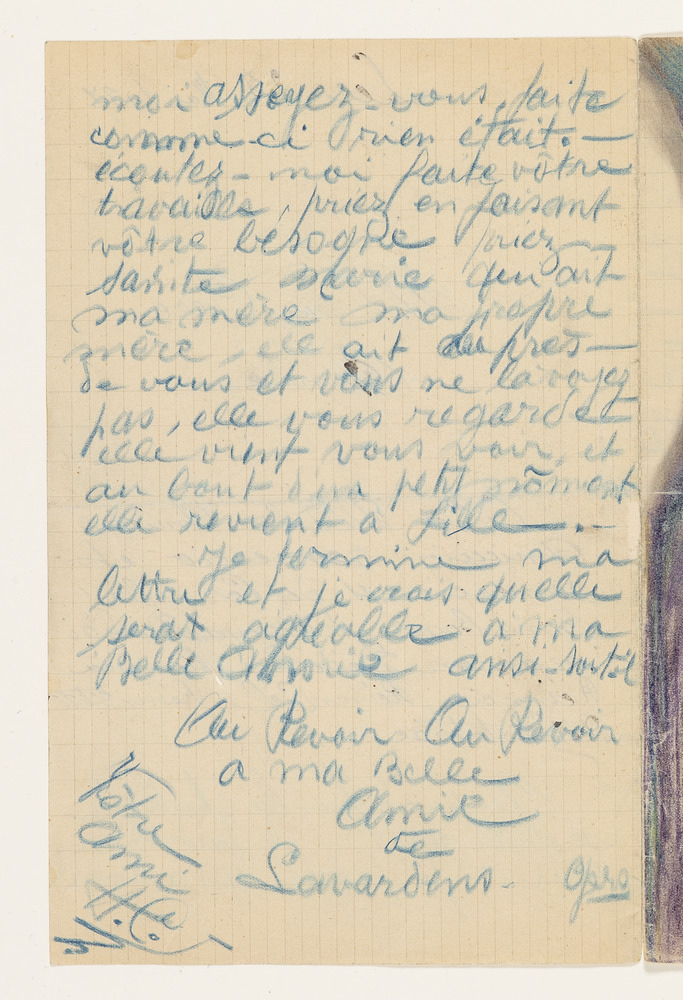 moi asseyez-vous, faite
comme-ci rien était. —
écoutez - moi faite vôtre
travaille, priez en faisant
vôtre besogne priez
sainte marie qu'en ait
ma mère ma propre
mère, elle ait auprès —
de vous et vous ne la voyez
pas, elle vous regarde
elle vient vous voir, et
au bout d'un petit môment
elle revient à Lille. —
Je termine ma
lettre et je crois quelle
serat agréable a ma
Belle Amie ansi-soit-il
Au Revoir Au Revoir
a ma Belle
Amie
de
Lavardens.
Gers
Vôtre
Ami